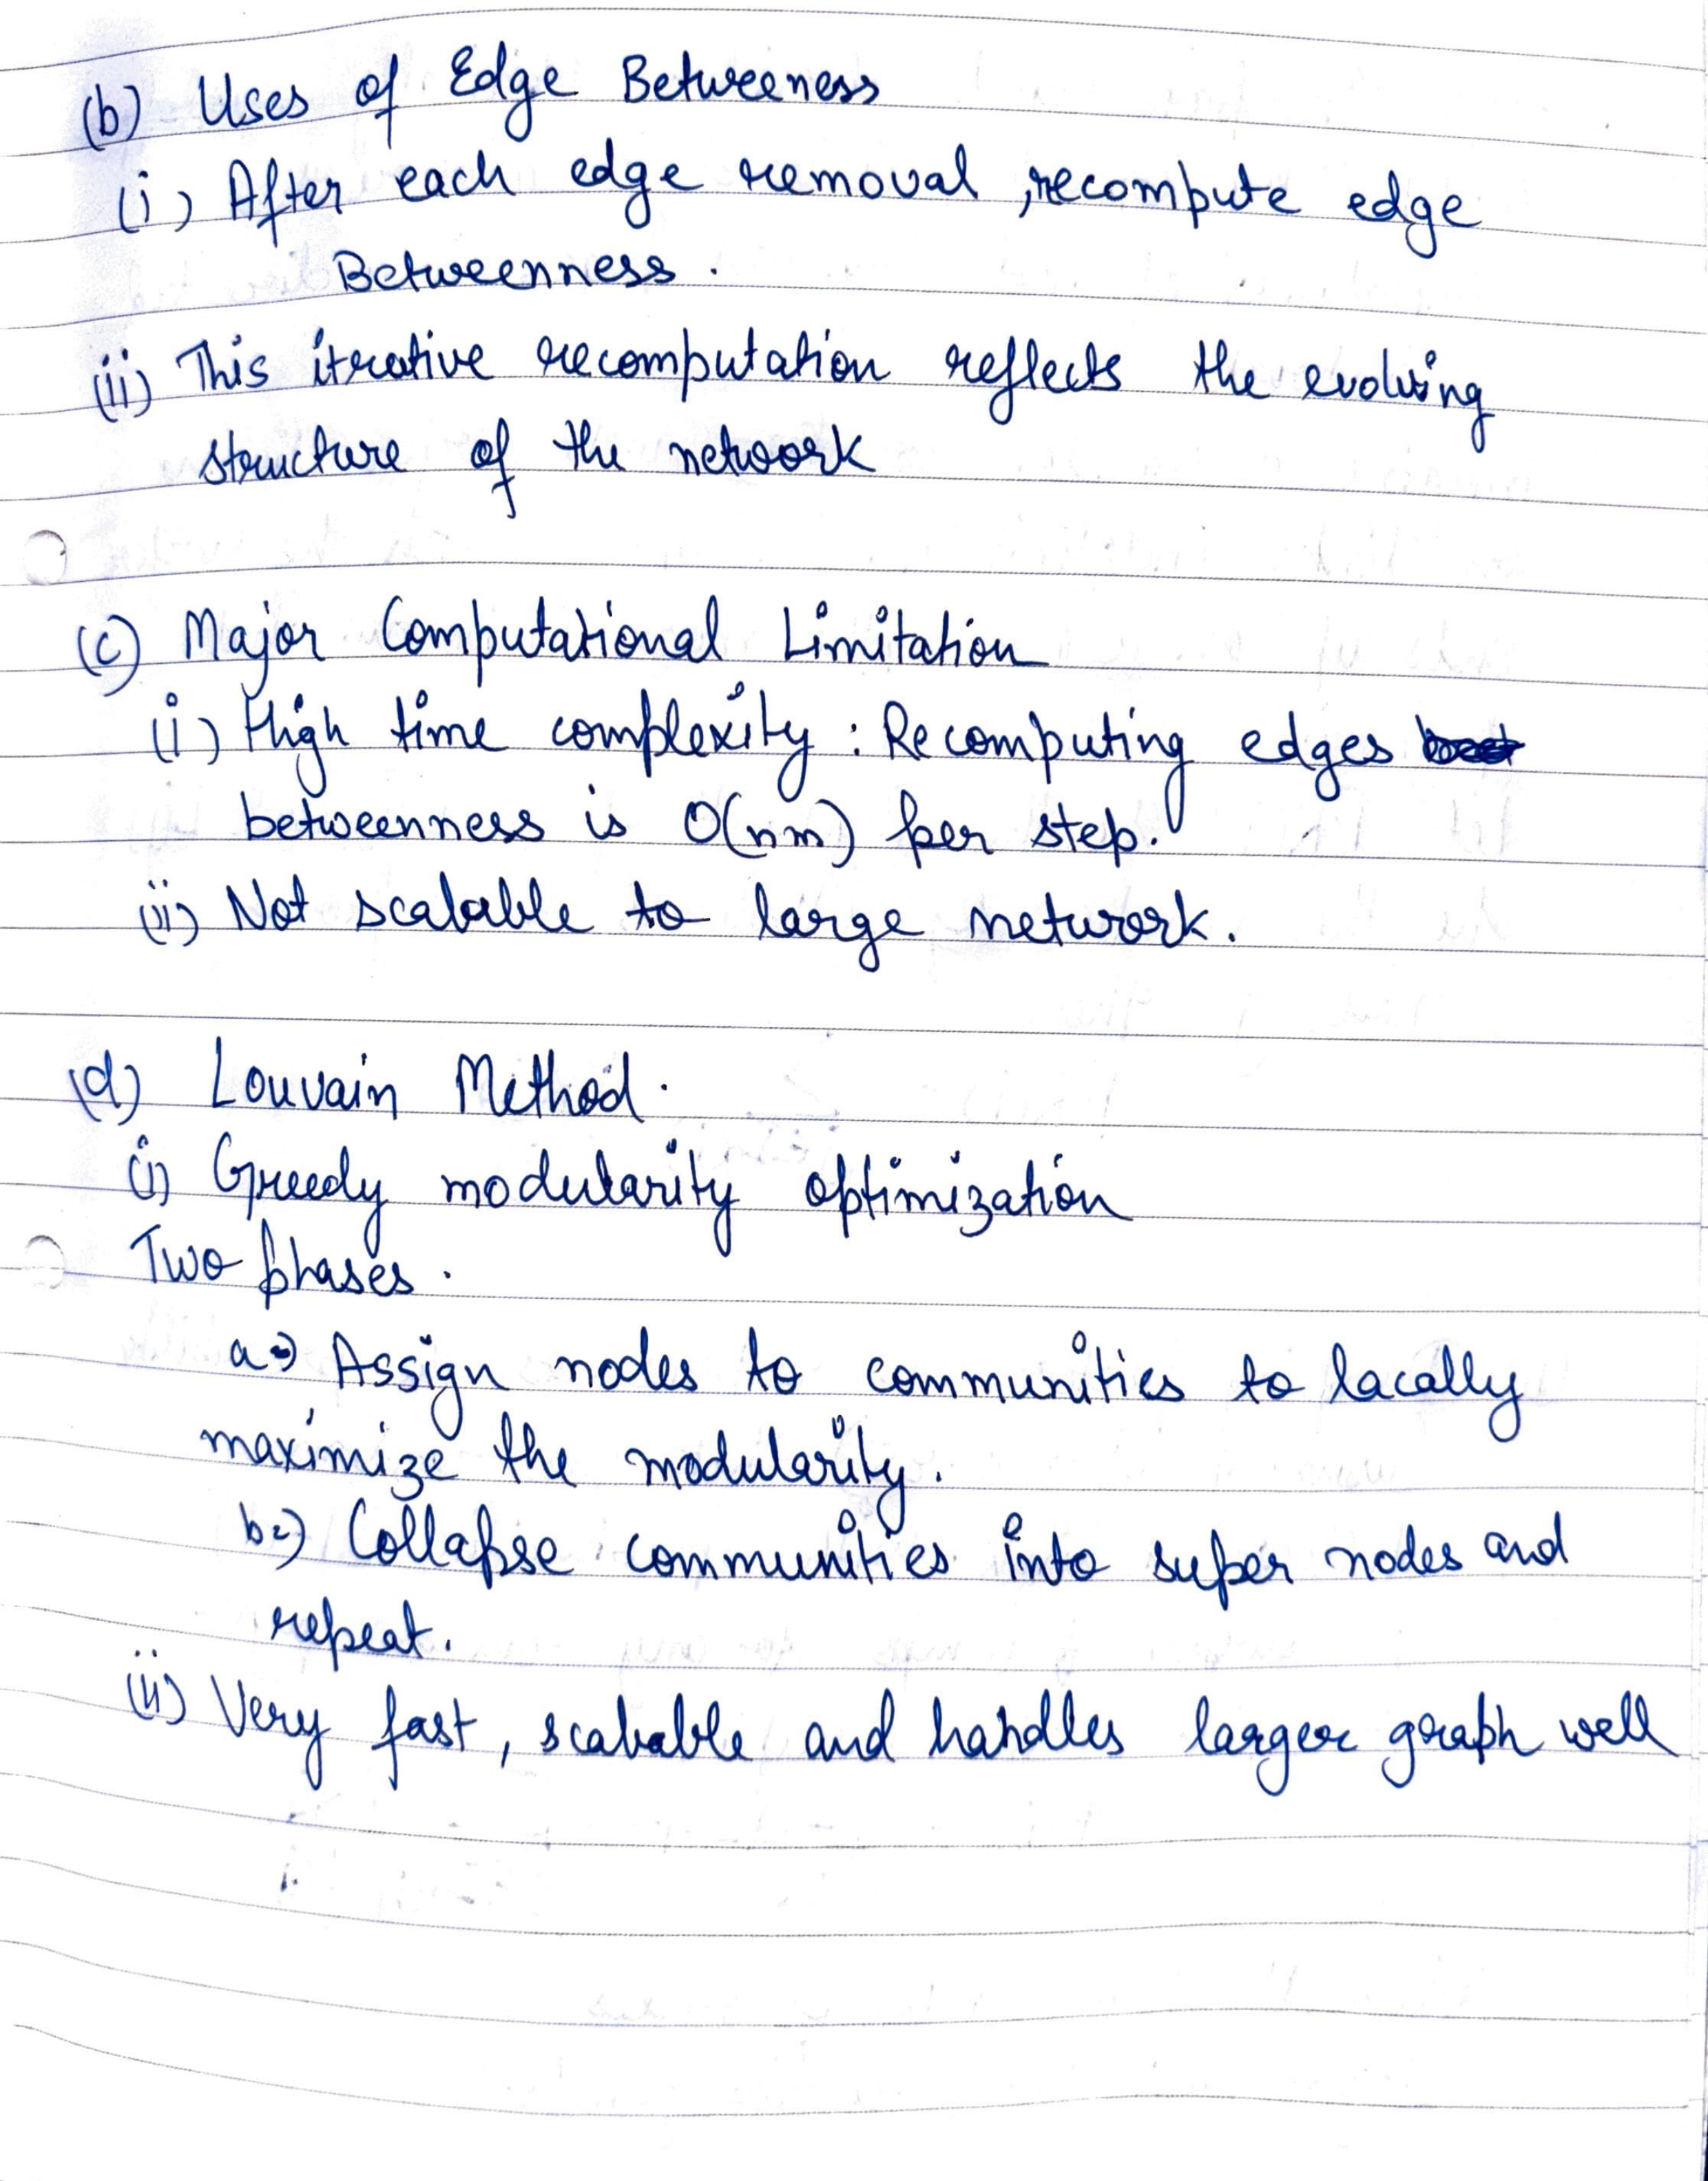 (b) Uses of Edge Betweeness
(i) After each edge removal, recompute edge
Betweenness.
(ii) This iterative recomputation reflects the evolving
structure of the network
(c) Major Computational Limitation
(i) High time complexity : Recomputing edges
betweenness is O(nm) per step.
(ii) Not scalable to large network.
(d) Louvain Method.
(i) Greedy modularity optimization
Two phases.
a⇒) Assign nodes to communities to lacally
maximize the modularity.
b⇒) Collapse communities into super nodes and
repeat.
(ii) Very fast, scalable and handles larger graph well